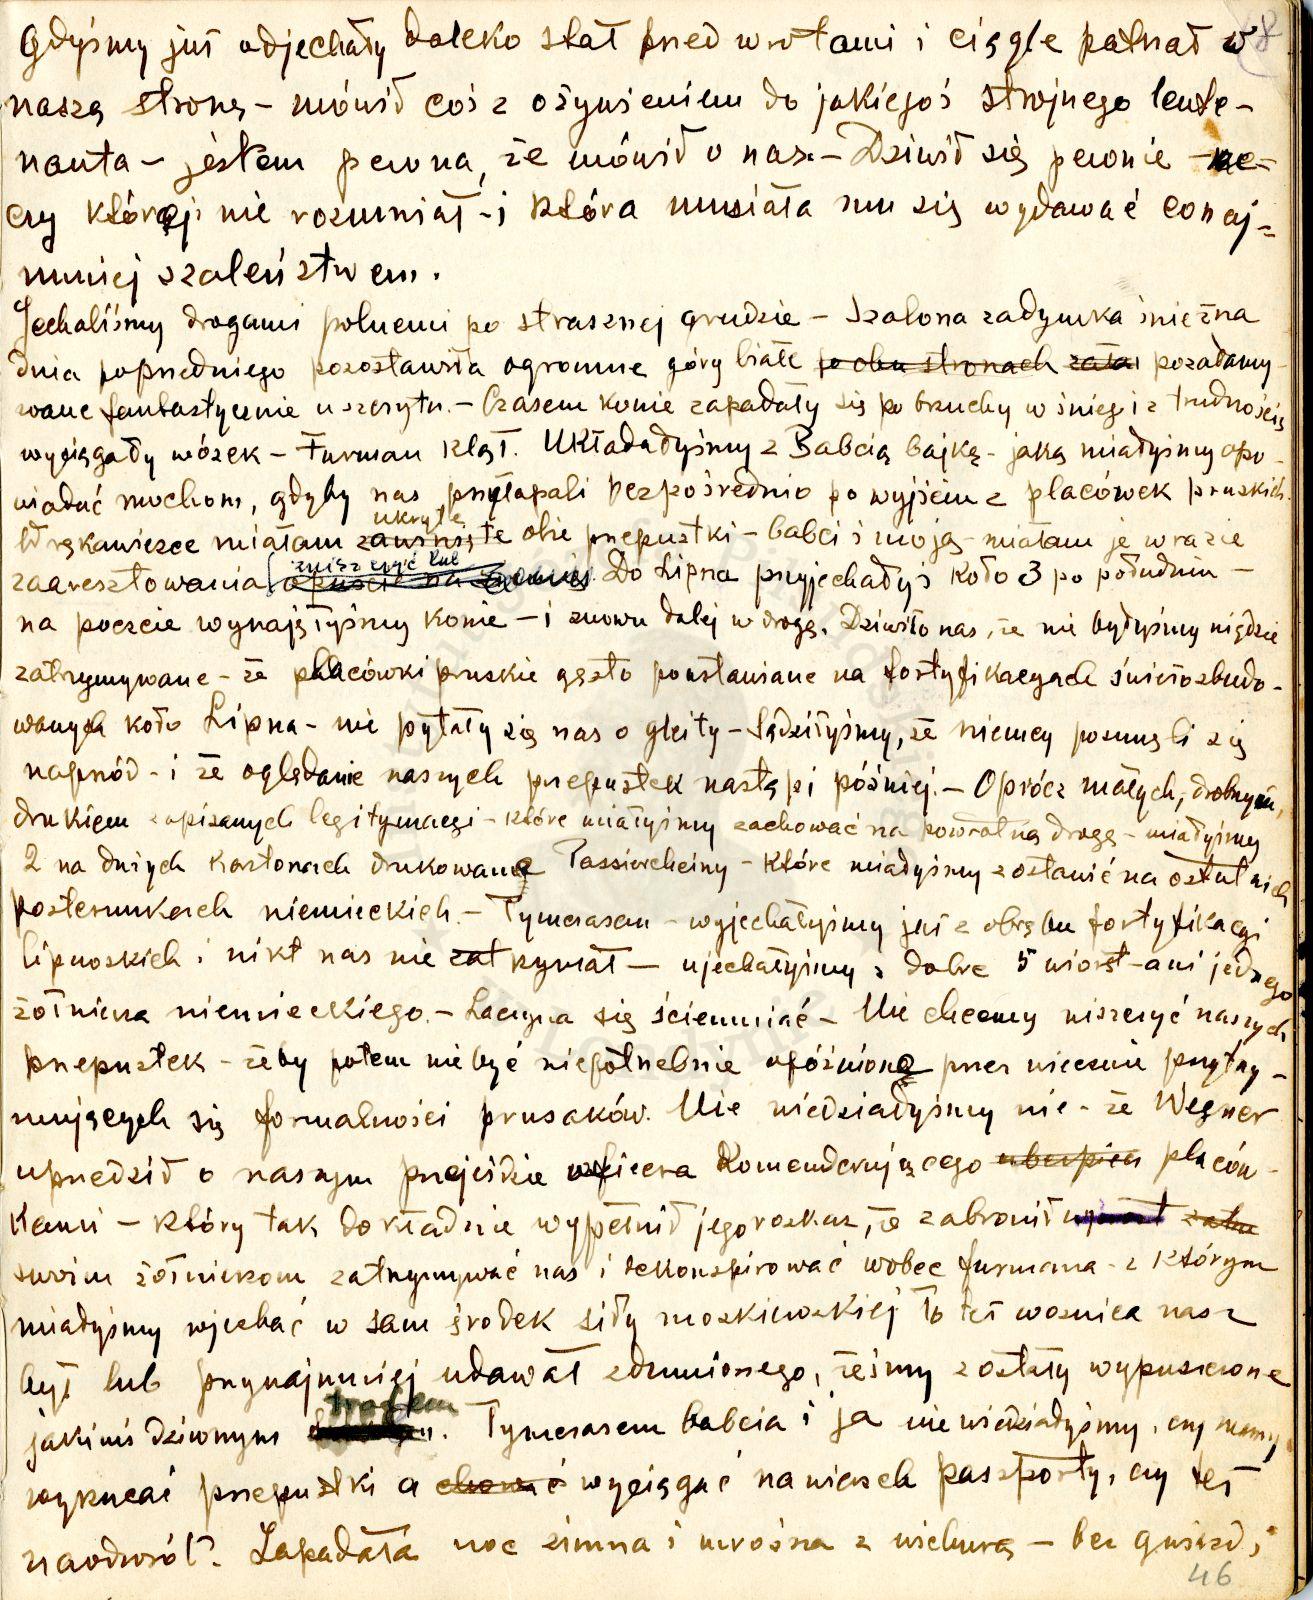 Gdyśmy już odjechały daleko stał przed wrotami i ciągle patrzał w
naszą stronę – mówił coś z ożywieniem do jakiegoś strojnego leute-
nanta – jestem pewna, że mówił o nas. – Dziwił się pewnie rze-
czy której nie rozumiał – i która musiała mu się wydawać conaj=
mniej szaleństwem.
Jechaliśmy drogami polnemi po strasznej grudzie – Szalona zadymka śnieżna
dnia poprzedniego pozostawiła ogromne góry białe po obu stronach pozałamy-
wane fantastycznie u szczytu. – Czasem konie zapadały się po brzuchy w śnieg i z trudnością
wyciągały wózek – Furman klął. Układałyśmy z Babcią bajkę – jaką miałyśmy opo-
wiadać mochom, gdyby nas przyłapali bezpośrednio po wyjściu z placówek pruskich.
ukryte
W rękawiczce miałam te obie przepustki – babci i moją – miałam je w razie
zniszczyć lub
zaaresztowania opuścić na ziemię. Do Lipna przyjechałyś koło 3 po południu –
na poczcie wynajęłyśmy konie – i znowu dalej w drogę. Dziwiło nas, że nie byłyśmy nigdzie
zatrzymywane – że placówki pruskie gęsto poustawiane na fortyfikacyach świeżozbudo-
wanych koło Lipna – nie pytały się nas o glejty – Sądziłyśmy, że niemcy posunęli się
naprzód – i że oglądanie naszych przepustek nastąpi później. – Oprócz małych, drobnym,
drukiem zapisanych legitymacyi – które miałyśmy zachować na powrotną drogę – miałyśmy
2 na dużych kartonach drukowane Passierscheiny – które miałyśmy zostawić na ostatnich
posterunkach niemieckich. – Tymczasem – wyjechałyśmy już z obrębu fortyfikacyi
lipnoskich i nikt nas nie zatrzymał – ujechałyśmy z dobre 5 wiorst – ani jednego
żołnierza niemieckiego. – Zaczyna się ściemniać – Nie chcemy niszczyć naszych
przepustek – żeby potem nie być niepotrzebnie opóźnione przez wiecznie przytrzy-
mujących się formalności prusaków. Nie wiedziałyśmy nic – że Wegner
uprzedził o naszym przejeździe oficera komenderującego placów-
kami – który tak dokładnie wypełnił jego rozkaz, że zabronił
swoim żołnierzom zatrzymywać nas i dekonspirować wobec furmana – z którym
miałyśmy wjechać w sam środek siły moskiewskiej To też woźnica nasz
był lub przynajmniej udawał zdumionego, żeśmy zostały wypuszczone
trafem
jakimś dziwnym. Tymczasem babcia i ja nie wiedziałyśmy, czy mamy
wyrzucać przepustki a chować wyciągać na wierzch paszporty, czy też
naodwrót. Zapadała noc zimna i mroźna z wichurą – bez gwiazd,
46